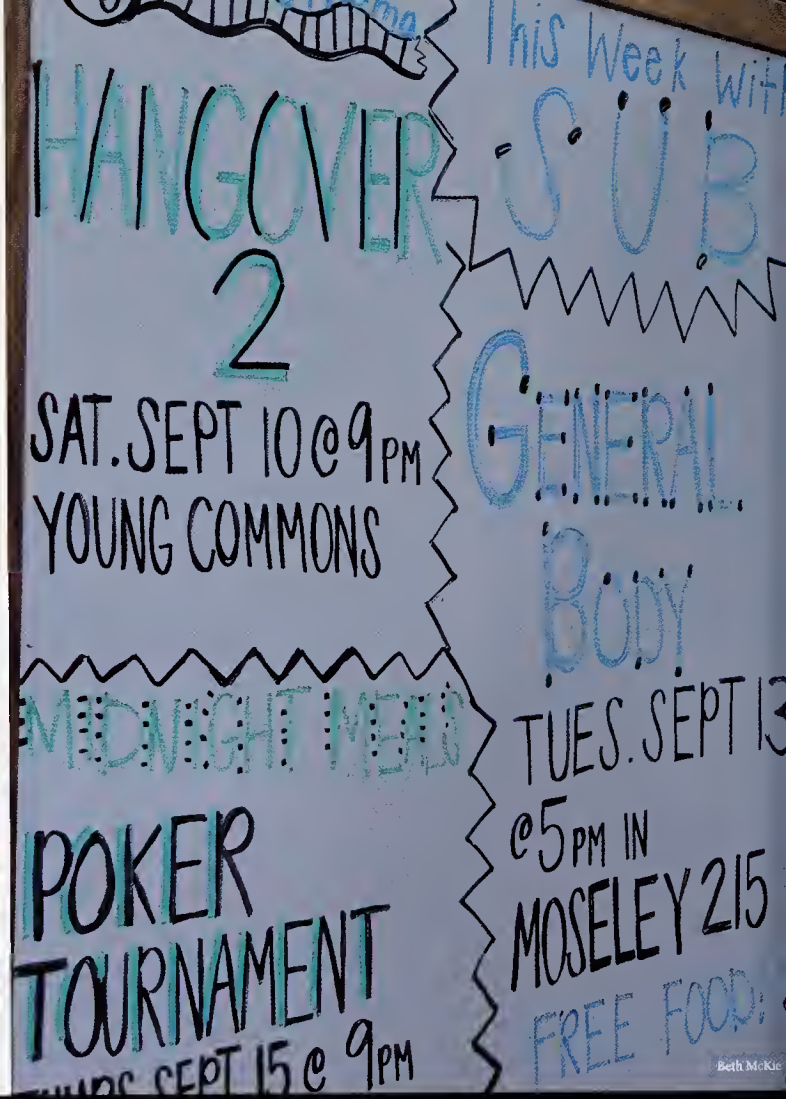 HANGOVER
2
SAT. SEPT 10 @ 9PM
YOUNG COMMONS
MIDNIGHT MEALS
POKER
TOURNAMENT
THURS. SEPT 15 @ 9PM
This Week With
SUB
GENERAL
BODY
TUES. SEPT 13
@ 5PM IN
MOSELEY 215
FREE FOOD!
Beth McKie